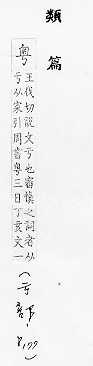 類篇
粵
王伐切說文亏也審慎之詞者从
亏从宷引周書粵三日丁亥文一
(亏部,